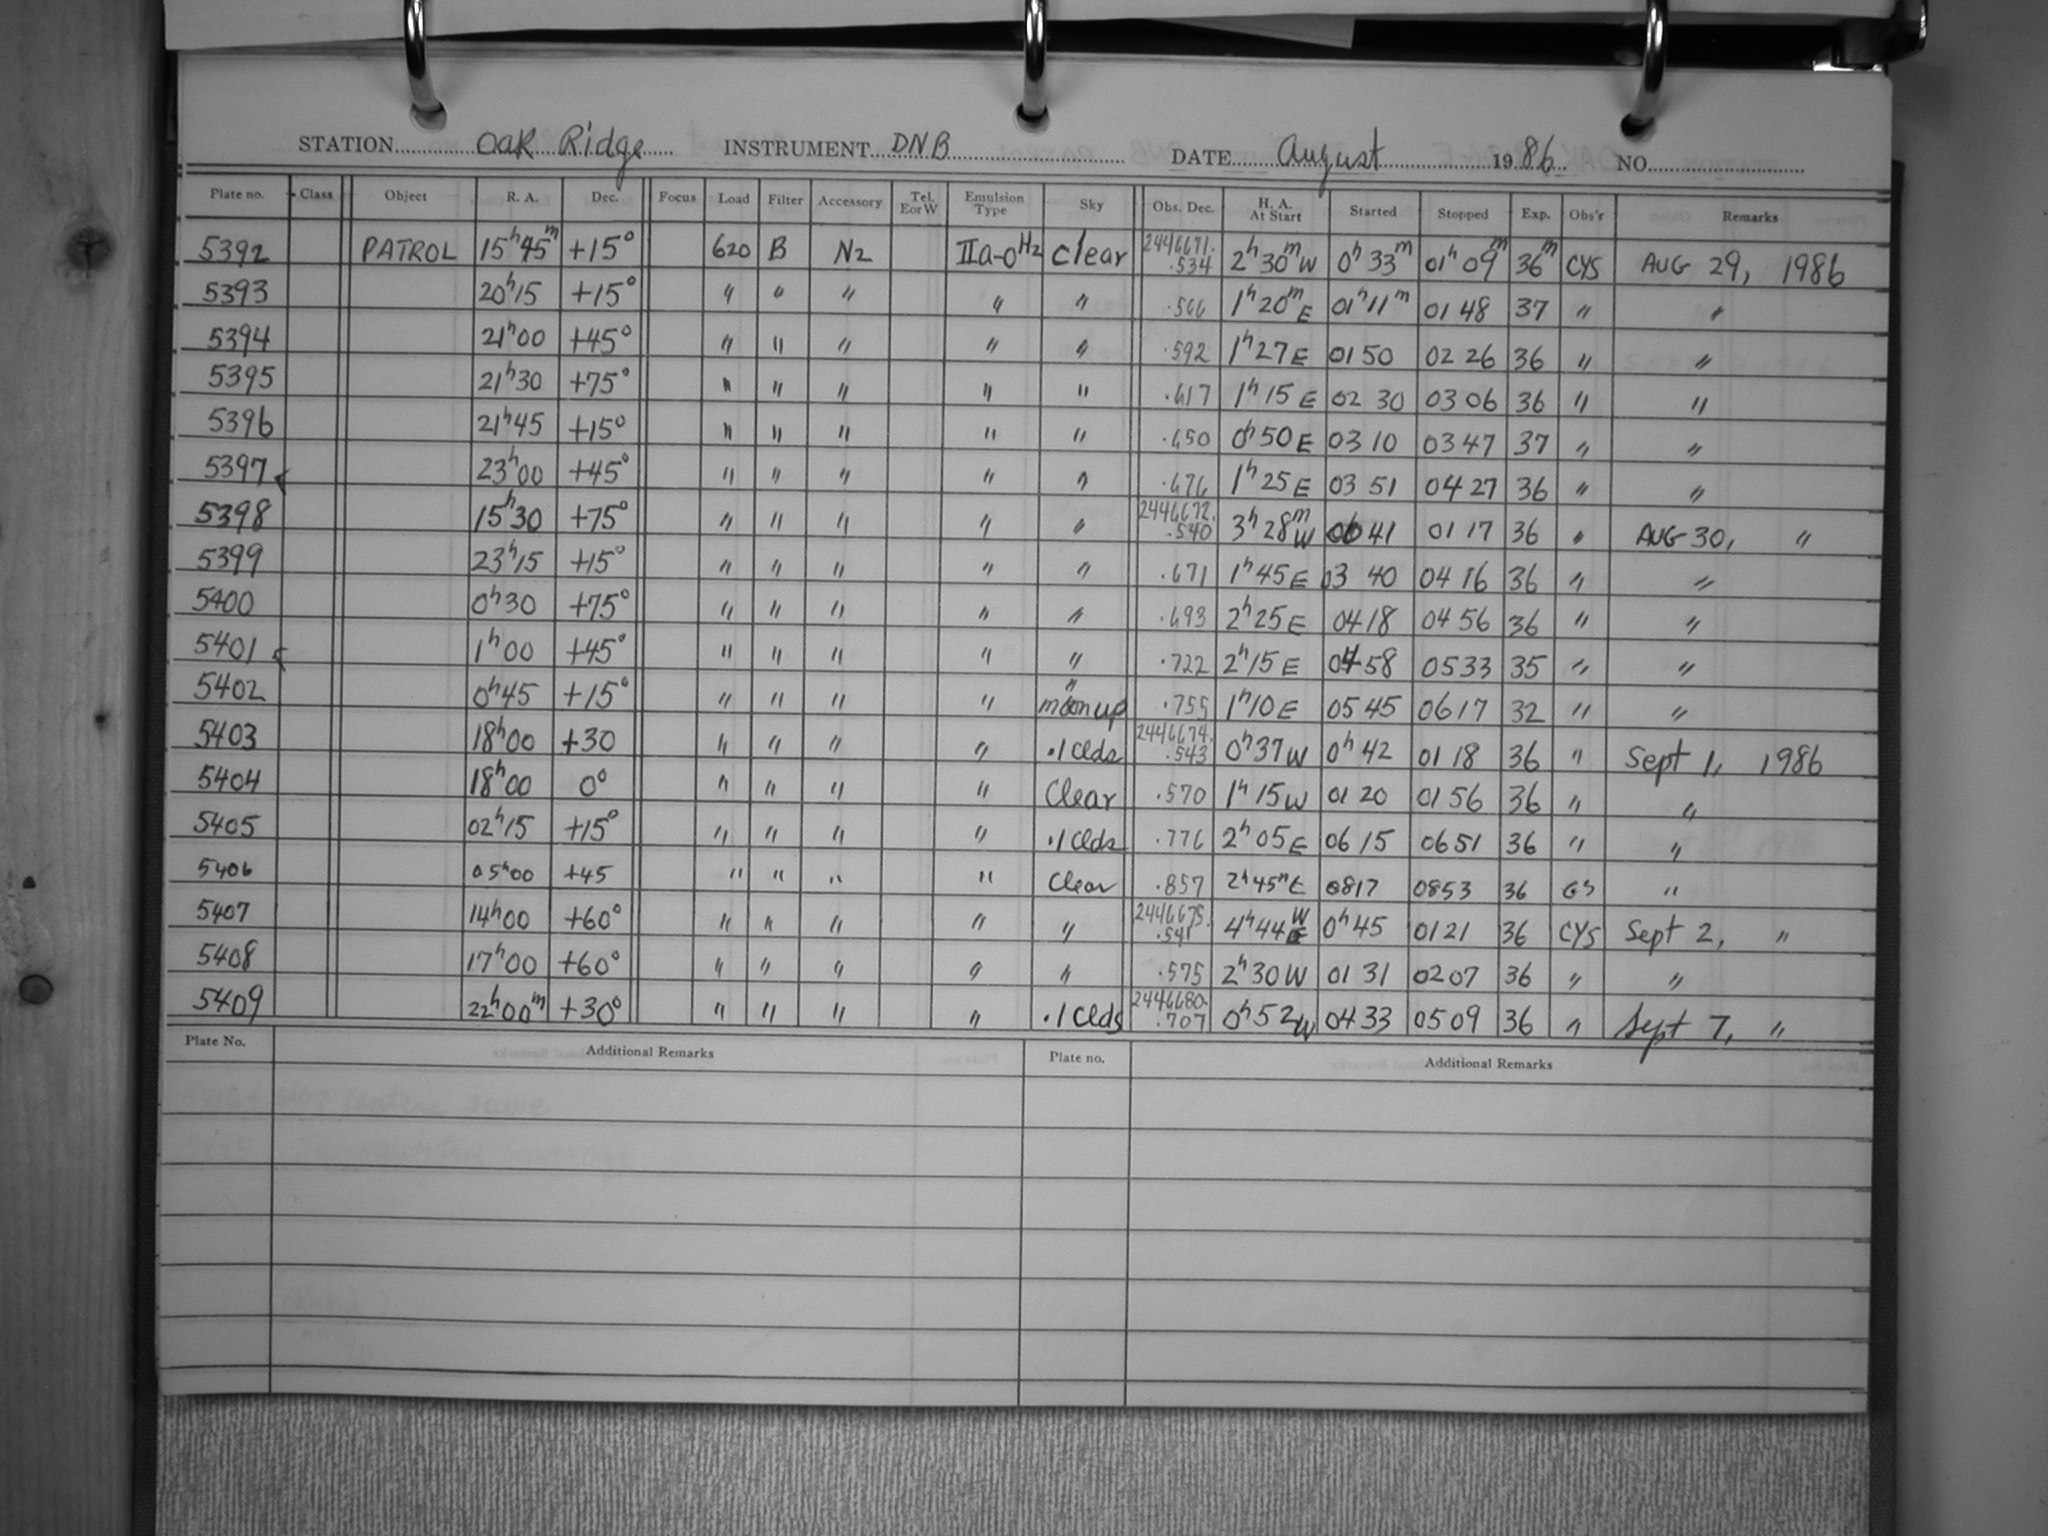 STATION Oak Ridge INSTRUMENT DNB DATE August 1986 NO.
Plate no. Class Object R. A. Dec. Focus Load Filter Accessory Tel. E or W Emulsion Type Sky Obs. Dec. H. A. At Start Started Stopped Exp. Obs'r Remarks
5392 PATROL 15h45m +15° 620 B N2 IIa-O H2 clear 2446671.534 2h30mW 0h33m 01h09m 36m CYS AUG 29, 1986
5393 20h15 +15° " " " " " .566 1h20mE 01h11m 01 48 37 " "
5394 21h00 +45° " " " " " .592 1h27E 01 50 02 26 36 " "
5395 21h30 +75° " " " " " .617 1h15E 02 30 03 06 36 " "
5396 21h45 +15° " " " " " .650 0h50E 03 10 03 47 37 " "
5397 23h00 +45° " " " " " .676 1h25E 03 51 04 27 36 " "
5398 15h30 +75° " " " " " 2446672.540 3h28mW 41 01 17 36 " AUG 30, "
5399 23h15 +15° " " " " " .671 1h45E 03 40 04 16 36 " "
5400 0h30 +75° " " " " " .693 2h25E 04 18 04 56 36 " "
5401 1h00 +45° " " " " " .722 2h15E 04 58 05 33 35 " "
5402 0h45 +15° " " " " " moon up .755 1h10E 05 45 06 17 32 " "
5403 18h00 +30 " " " " .1 clds 2446674.543 0h37W 0h42 01 18 36 " Sept 1, 1986
5404 18h00 0° " " " " Clear .570 1h15W 01 20 01 56 36 " "
5405 02h15 +15° " " " " .1 clds .776 2h05E 06 15 06 51 36 " "
5406 05h00 +45 " " " " Clear .857 2h45mE 0817 0853 36 GS "
5407 14h00 +60° " " " " " 2446675.541 4h44W 0h45 01 21 36 CYS Sept 2, "
5408 17h00 +60° " " " " " .575 2h30W 01 31 02 07 36 " "
5409 22h00m +30° " " " " .1 clds 2446680.707 0h52W 04 33 05 09 36 " Sept 7, "
Plate No. Additional Remarks Plate no. Additional Remarks